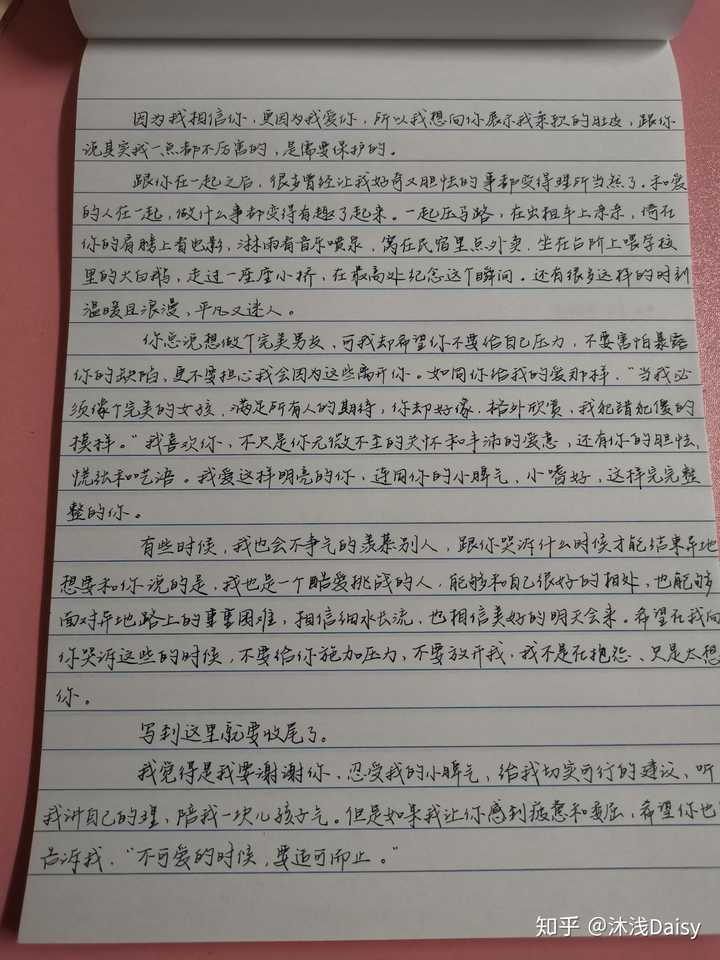 因为我相信你，更因为我爱你，所以我想向你展示我柔软的肚皮，跟你
说其实我一点都不厉害的，是需要保护的。
跟你在一起之后，很多曾经让我好奇又胆怯的事都变得理所当然了。和爱
的人在一起，做什么事都变得有趣了起来。一起压马路，在出租车上亲亲，倚在
你的肩膀上看电影，淋雨看音乐喷泉，窝在民宿里点外卖，坐在台阶上喂学校
里的大白鹅，走过一座座小桥，在最高处纪念这个瞬间。还有很多这样的时刻
温暖且浪漫，平凡又迷人。
你总说想做个完美男友，可我却希望你不要给自己压力，不要害怕暴露
你的缺陷，更不要担心我会因为这些离开你。如同你给我的爱那样，“当我必
须像个完美的女孩，满足所有人的期待，你却好像，格外欣赏，我犯错犯傻的
模样。”我喜欢你，不只是你无微不至的关怀和丰沛的爱意，还有你的胆怯，
慌张和呓语。我爱这样明亮的你，连同你的小脾气，小嗜好，这样完完整
整的你。
有些时候，我也会不争气的羡慕别人，跟你哭诉什么时候才能结束异地
想要和你说的是，我也是一个酷爱挑战的人，能够和自己很好的相处，也能够
面对异地路上的重重困难，相信细水长流，也相信美好的明天会来。希望在我向
你哭诉这些的时候，不要给你施加压力，不要放开我，我不是在抱怨、只是太想
你。
写到这里就要收尾了。
我觉得是我要谢谢你，忍受我的小脾气，给我切实可行的建议，听
我讲自己的理，陪我一块儿孩子气。但是如果我让你感到疲惫和委屈，希望你也
告诉我，“不可爱的时候，要适可而止。”
知乎 @沐浅Daisy